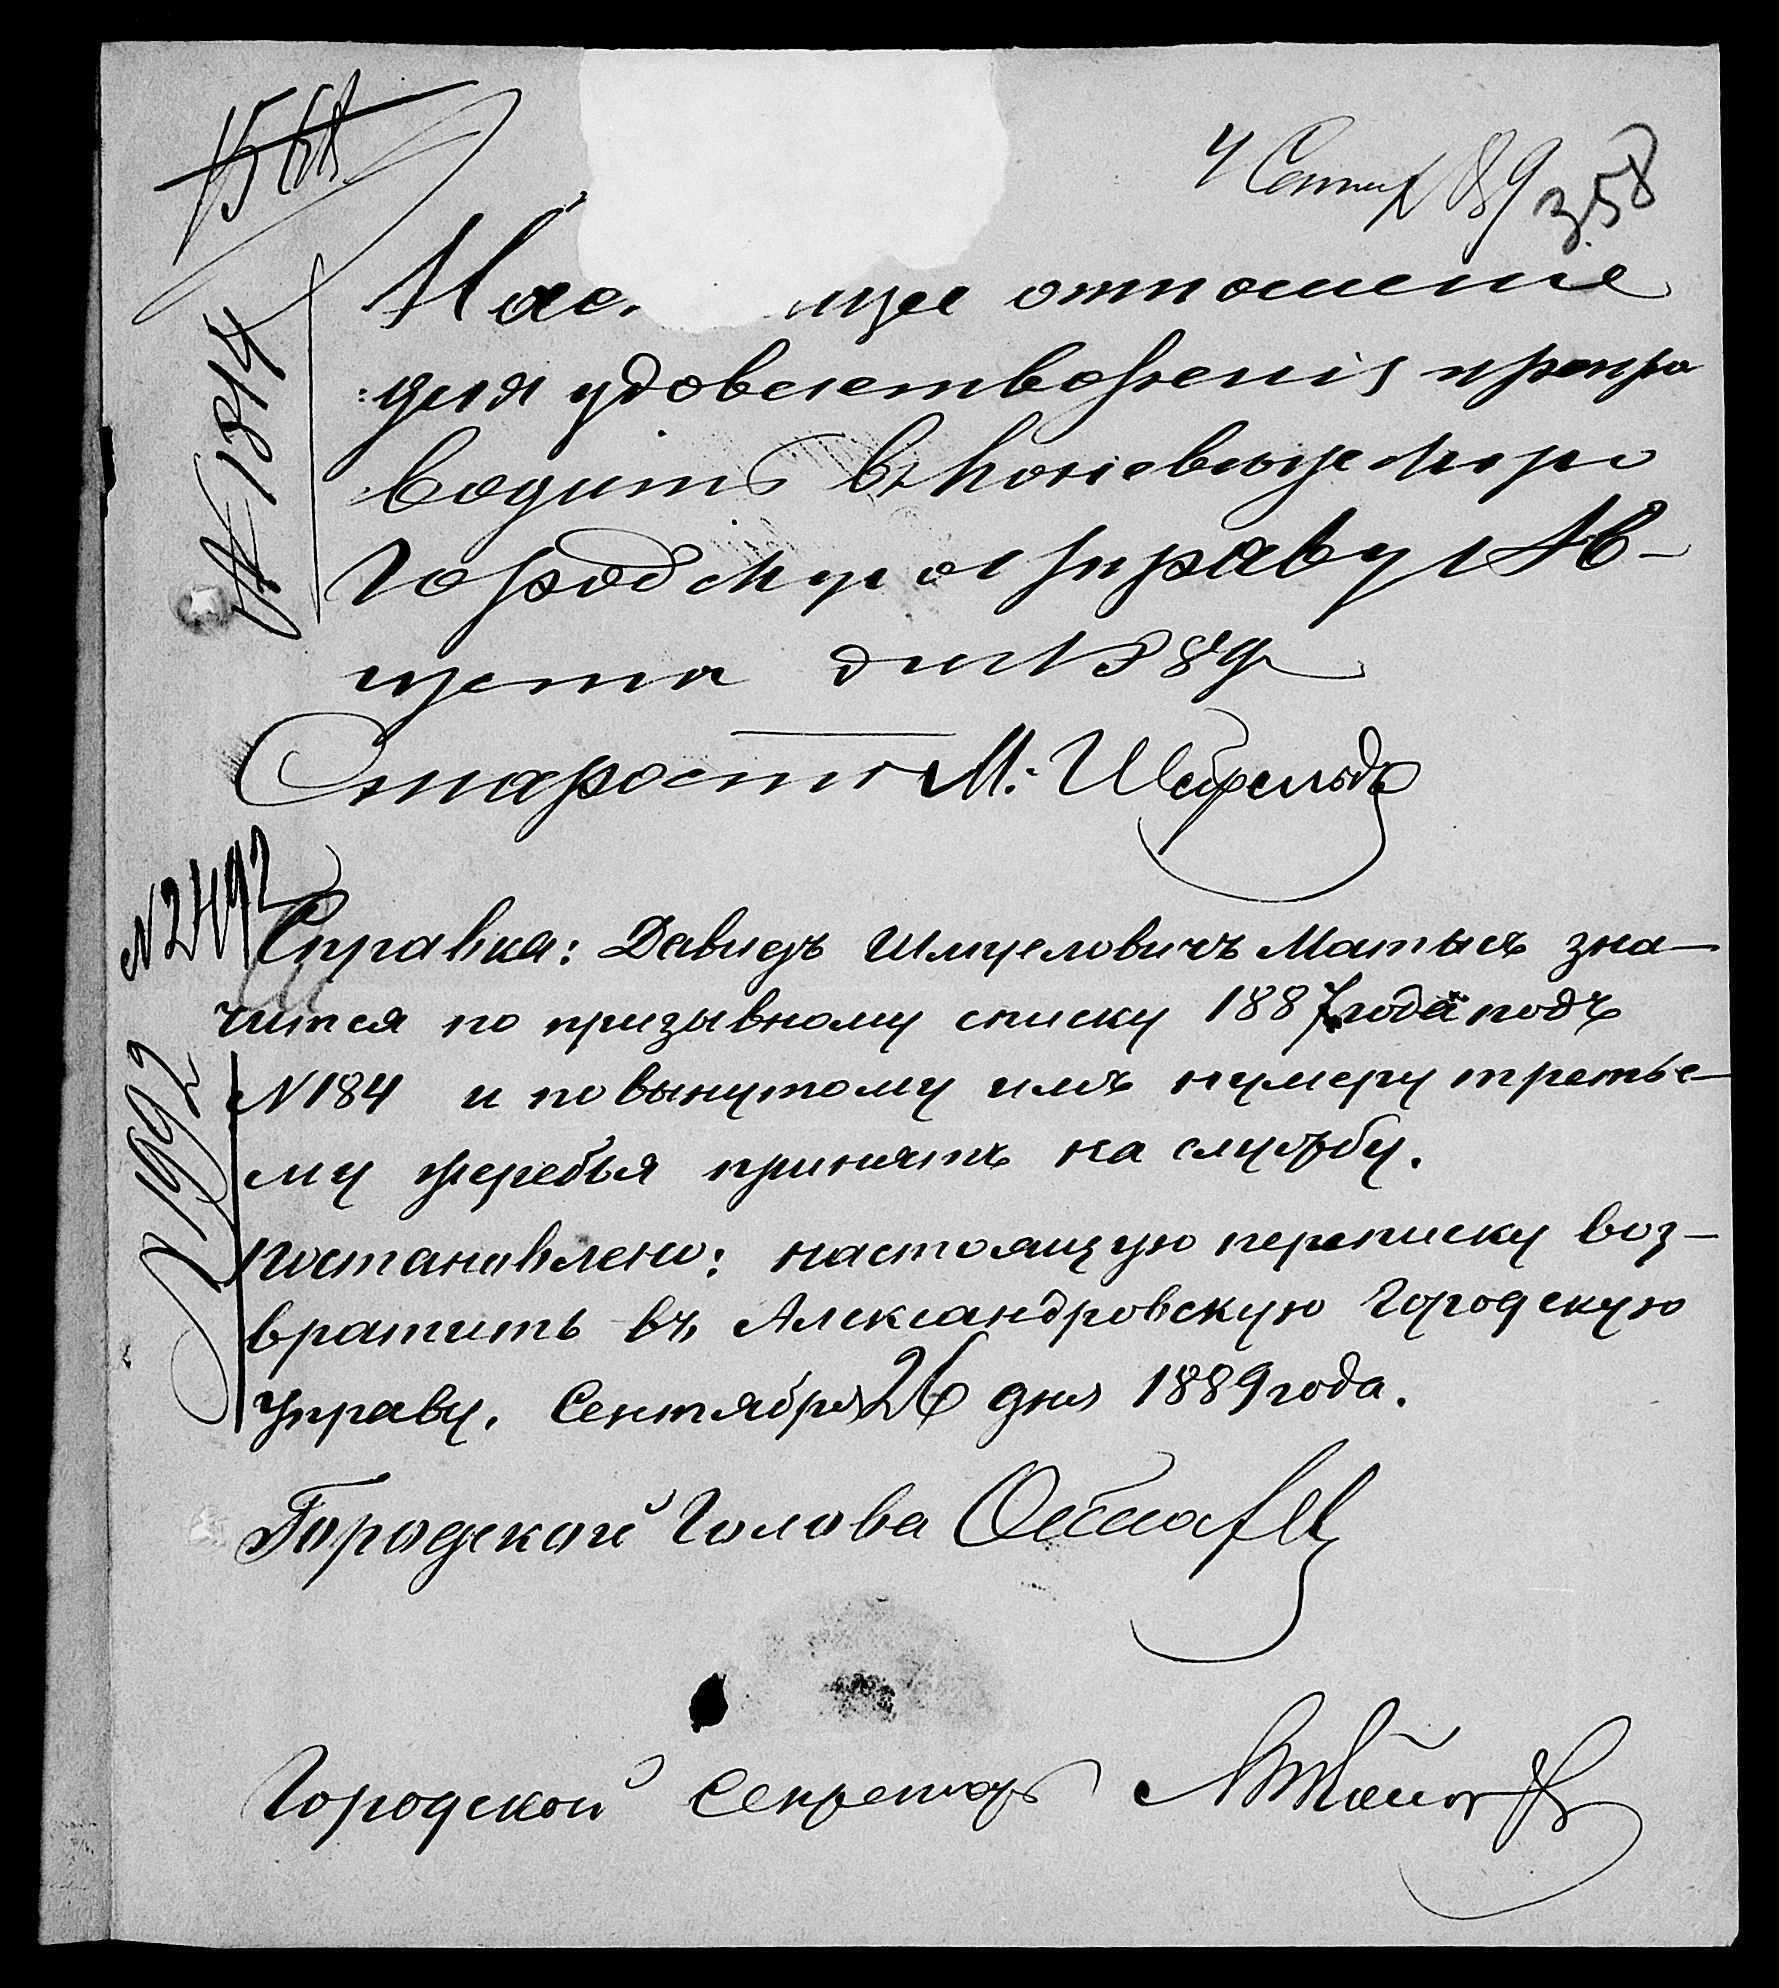 4 Сентяб 89
358
Нас щее отношеніе
для удовлетворенія препро
водить въ
Городскую Управу Ав-
густа дня 1889
Староста М. Шейфельдъ
№ 1814
№ 2492
Справка: Давидъ Шмуеловичъ Матысъ зна-
чится по призывному списку 1887 года подъ
№ 184 и по вынутому имъ нумеру третье-
му жеребья принятъ на службу.
Постановлено: настоящую переписку воз-
вратить въ Александровскую Городскую
Управу. Сентября 26 дня 1889 года.
№ 1992
Городской Голова
Городской Секретарь